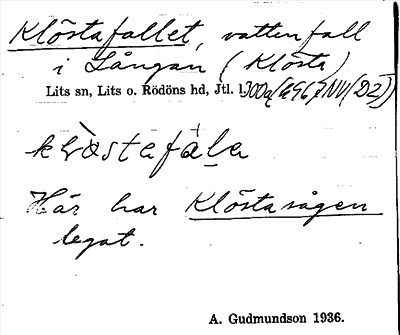 Klöstafallet, vattenfall
i Långan (Klösta)
Lits sn, Lits o. Rödöns hd, Jtl.
klòstafála
Här har Klöstasågen
legat.
A. Gudmundson 1936.